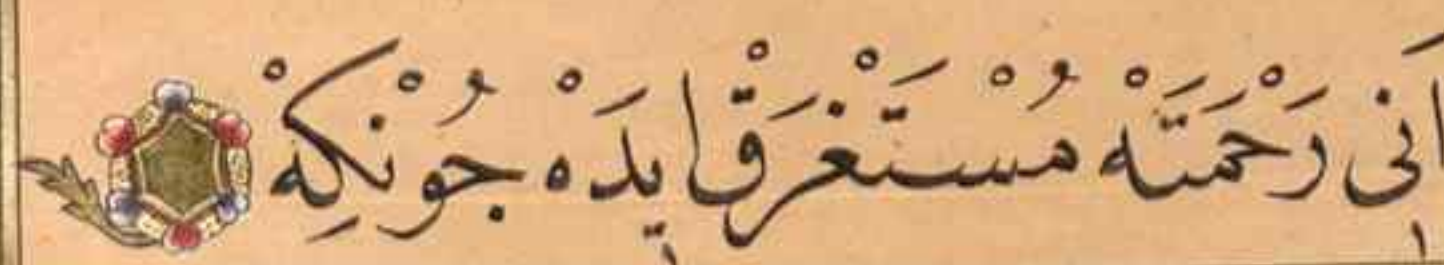 اَنِی رَحْمَتَهْ مُسْتَغْرَقْ اِیدَهْ جُوْنْكِهْ